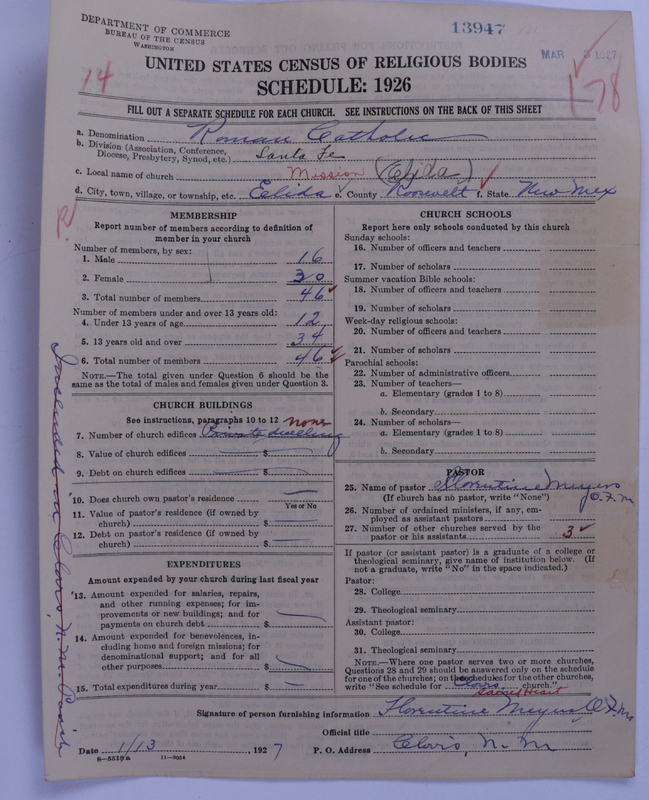 DEPARTMENT OF COMMERCE
BUREAU OF THE CENSUS
WASHINGTON
13947
MAR
UNITED STATES CENSUS OF RELIGIOUS BODIES
SCHEDULE: 1926
74
178
FILL OUT A SEPARATE SCHEDULE FOR EACH CHURCH. SEE INSTRUCTIONS ON THE BACK OF THIS SHEET
a. Denomination Roman Catholic
b. Division (Association, Conference, Diocese, Presbytery, Synod, etc.) Santa Fe
c. Local name of church Mission (Elida)
d. City, town, village, or township, etc. Elida e. County Roosevelt f. State New Mex
R
MEMBERSHIP
Report number of members according to definition of
member in your church
Number of members, by sex:
1. Male 16
2. Female 30
3. Total number of members 46
Number of members under and over 13 years old:
4. Under 13 years of age 12
5. 13 years old and over 34
6. Total number of members 46
NOTE.—The total given under Question 6 should be the
same as the total of males and females given under Question 3.
CHURCH BUILDINGS
See instructions, paragraphs 10 to 12 none
7. Number of church edifices Private dwelling
8. Value of church edifices $
9. Debt on church edifices $
10. Does church own pastor's residence
Yes or No
11. Value of pastor's residence (if owned by
church) $
12. Debt on pastor's residence (if owned by
church) $
EXPENDITURES
Amount expended by your church during last fiscal year
13. Amount expended for salaries, repairs,
and other running expenses; for im-
provements or new buildings; and for
payments on church debt $
14. Amount expended for benevolences, in-
cluding home and foreign missions; for
denominational support; and for all
other purposes $
15. Total expenditures during year $
Included in Clovis, N. M.
CHURCH SCHOOLS
Report here only schools conducted by this church
Sunday schools:
16. Number of officers and teachers
17. Number of scholars
Summer vacation Bible schools:
18. Number of officers and teachers
19. Number of scholars
Week-day religious schools:
20. Number of officers and teachers
21. Number of scholars
Parochial schools:
22. Number of administrative officers
23. Number of teachers—
a. Elementary (grades 1 to 8)
b. Secondary
24. Number of scholars—
a. Elementary (grades 1 to 8)
b. Secondary
PASTOR
25. Name of pastor Florentine Meyers
O.F.M
(If church has no pastor, write "None")
26. Number of ordained ministers, if any, em-
ployed as assistant pastors
27. Number of other churches served by the
pastor or his assistants 3
If pastor (or assistant pastor) is a graduate of a college or
theological seminary, give name of institution below. (If
not a graduate, write "No" in the space indicated.)
Pastor:
28. College
29. Theological seminary
Assistant pastor:
30. College
31. Theological seminary
NOTE.—Where one pastor serves two or more churches,
Questions 28 and 29 should be answered only on the schedule
for one of the churches; on the schedules for the other churches,
write "See schedule for Clovis church."
Sacred Heart
Signature of person furnishing information Florentine Meyers O.F.M
Official title
Date 1/13, 1927 P. O. Address Clovis, N. M
8—5518a 11—9054